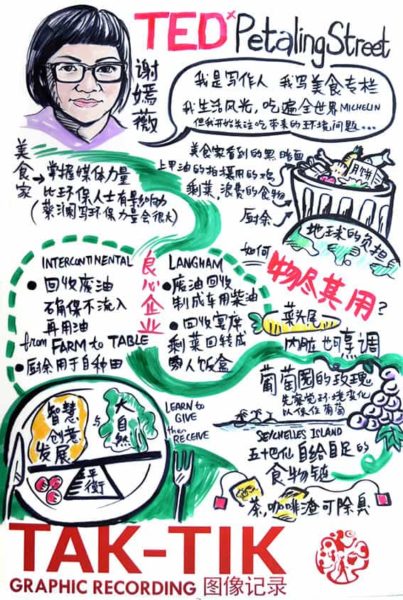 TEDx Petaling Street
谢嫣薇
我是写作人 我写美食专栏
我生活风光,吃遍全世界 MICHELIN
但我开始关注吃带来的环境问题...
美食家
掌握媒体力量
比环保人士有影响力
美食家看到的黑暗面
剩菜、浪费的食物
厨余
月饼
地球的负担
如何
物尽其用?
良心企业
INTERCONTINENTAL
回收废油
确保不流入
再用油
from FARM to TABLE
厨余用于自种田
LANGHAM
废油回收
制成车用柴油
回收宴席
剩菜回转成
穷人饭盒
菜头尾
内脏也烹调
葡萄园的玫瑰
先察觉环境变化
以保住葡萄
SEYCHELLES ISLAND
五十巴仙自给自足的
食物链
茶,咖啡渣可除臭
LEARN to
GIVE
then
RECEIVE
智慧
创意
发展
与
大自然
平衡
TAK-TIK
GRAPHIC RECORDING 图像记录